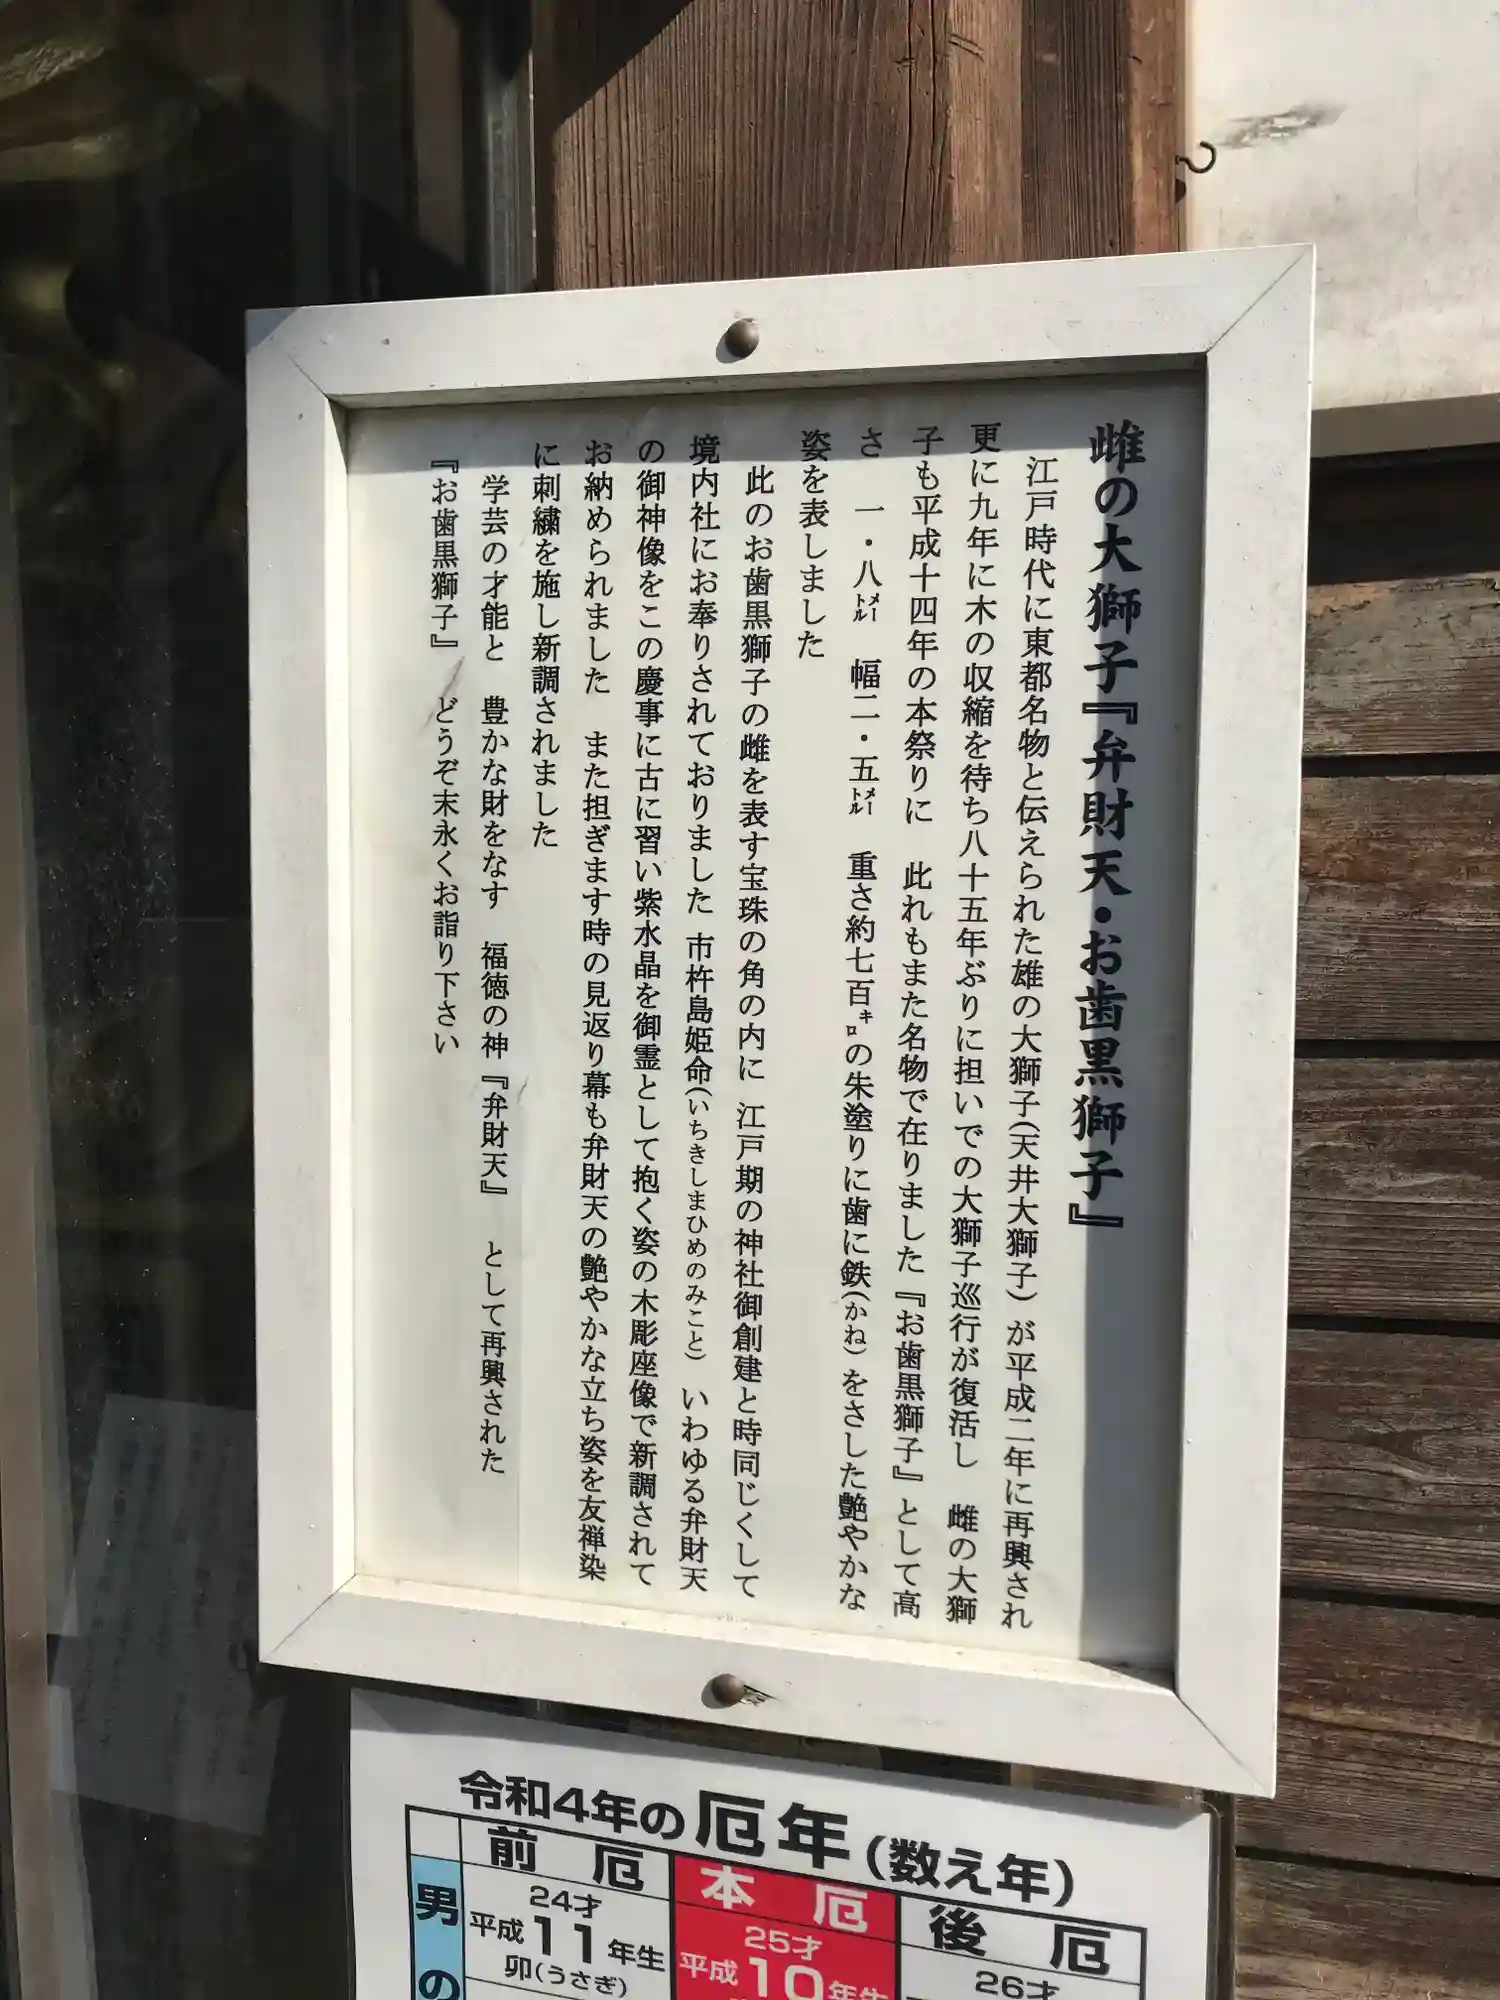 雌の大獅子『弁財天・お歯黒獅子』
江戸時代に東都名物と伝えられた雄の大獅子(天井大獅子)が平成二年に再興され
更に九年に木の収縮を待ち八十五年ぶりに担いでの大獅子巡行が復活し 雌の大獅
子も平成十四年の本祭りに 此れもまた名物で在りました『お歯黒獅子』として高
さ 一・八㍍ 幅二・五㍍ 重さ約七百㌔の朱塗りに歯に鉄(かね)をさした艶やかな
姿を表しました
此のお歯黒獅子の雌を表す宝珠の角の内に 江戸期の神社御創建と時同じくして
境内社にお奉りされておりました 市杵島姫命(いちきしまひめのみこと) いわゆる弁財天
の御神像をこの慶事に古に習い紫水晶を御霊として抱く姿の木彫座像で新調されて
お納められました また担ぎます時の見返り幕も弁財天の艶やかな立ち姿を友禅染
に刺繍を施し新調されました
学芸の才能と 豊かな財をなす 福徳の神『弁財天』 として再興された
『お歯黒獅子』 どうぞ末永くお詣り下さい
令和4年の厄年(数え年)
前厄 本厄 後厄
男の
24才 25才 26才
平成11年生 平成10年生
卯(うさぎ)